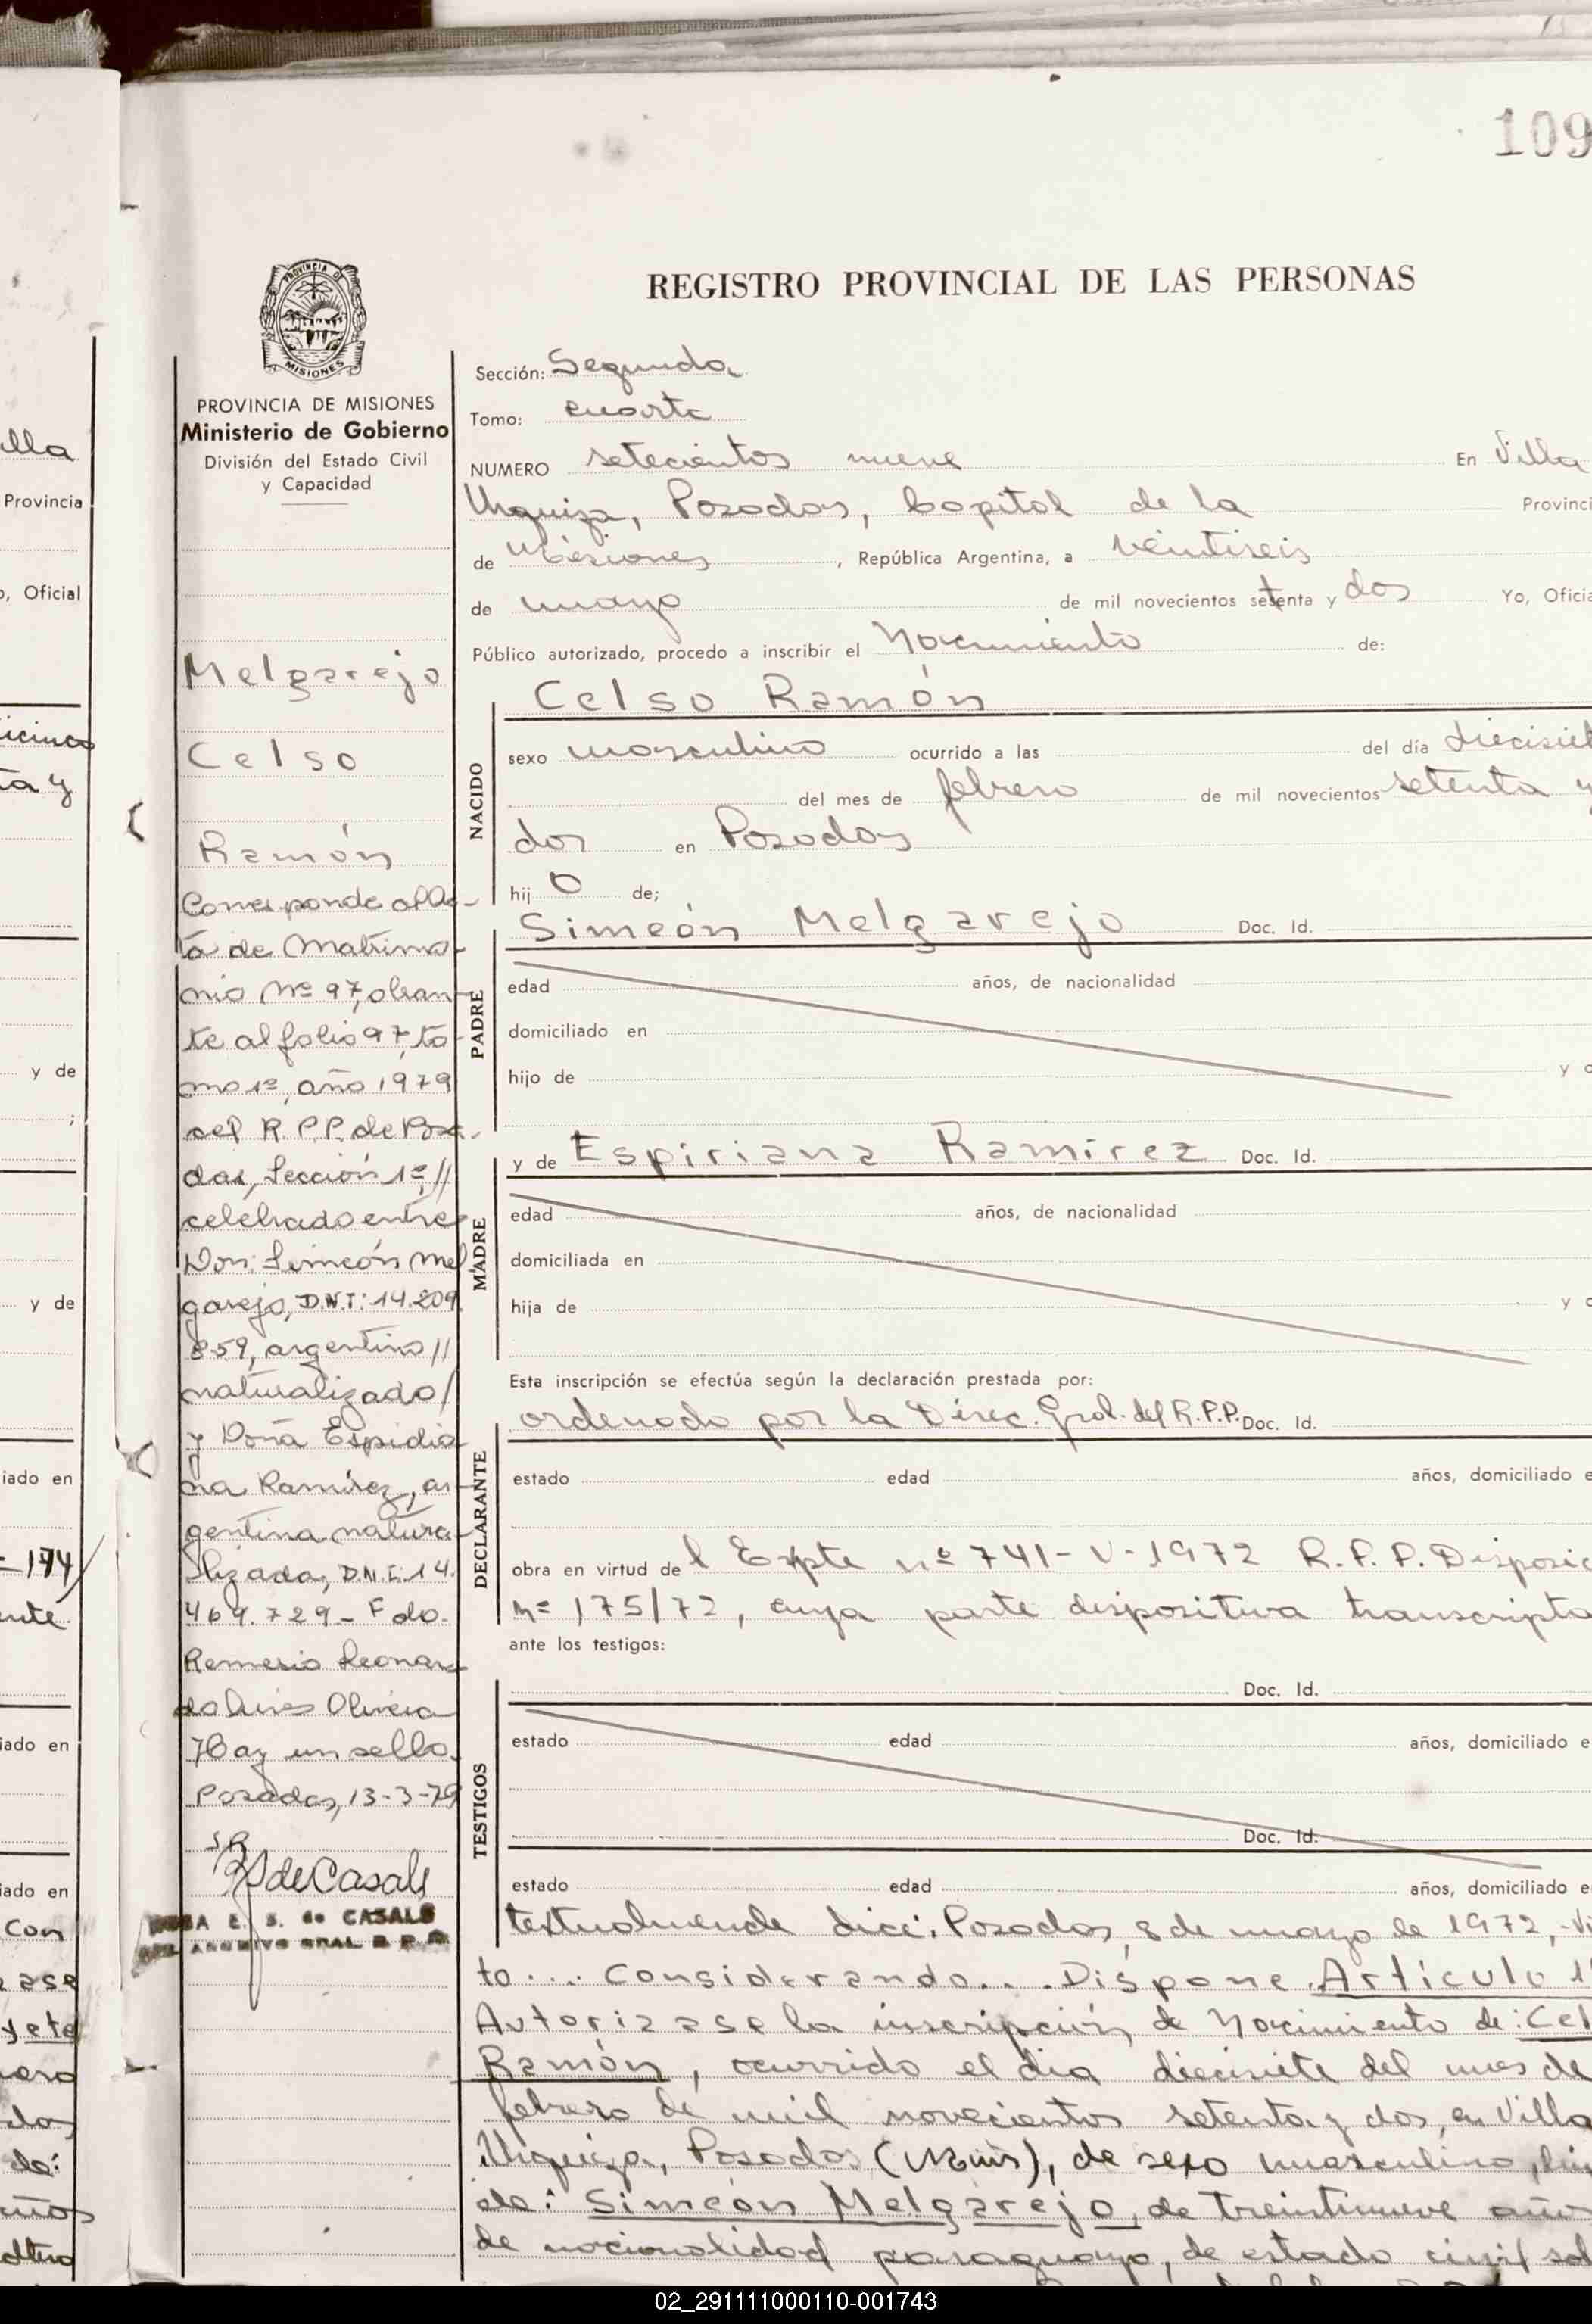 109
REGISTRO PROVINCIAL DE LAS PERSONAS
PROVINCIA DE
MISIONES
PROVINCIA DE MISIONES
Ministerio de Gobierno
División del Estado Civil
y Capacidad
Melgarejo
Celso
Ramón
Corresponde al Ac-
ta de Matrimo-
nio Nº 97, obran-
te al folio 97, to-
mo 1º, año 1979
del R.P.P. de Posa-
das, Sección 1ª, //
celebrado entre
Don: Simeón Mel
garejo, D.N.I: 14.209.
859, argentino //
naturalizado/
y Doña Espidia
na Ramírez, ar-
gentina natura-
lizada, D.N.I: 14.
469.729 - Fdo.
Remesio Leonar
do Olivera
Hay un sello.
Posadas, 13-3-79
de Casals
E. S. de CASALS
ARCHIVO GRAL R P
Sección: Segunda
Tomo: cuarto
NUMERO setecientos nueve En Villa
Urquiza, Posadas, Capital de la Provinci
de Misiones, República Argentina, a veintiseis
de mayo de mil novecientos setenta y dos Yo, Oficia
Público autorizado, procedo a inscribir el Nacimiento de:
Celso Ramón
NACIDO
sexo masculino ocurrido a las del día diecisiet
del mes de febrero de mil novecientos setenta y
dos en Posadas
hij o de;
Simeón Melgarejo Doc. Id.
PADRE
edad años, de nacionalidad
domiciliado en
hijo de y d
y de Espiriana Ramírez Doc. Id.
MADRE
edad años, de nacionalidad
domiciliada en
hija de y d
Esta inscripción se efectúa según la declaración prestada por:
ordenado por la Direc. Gral. del R.P.P. Doc. Id.
DECLARANTE
estado edad años, domiciliado e
obra en virtud de l Expte nº 741-V-1972 R.P.P. Disposic
Nº 175/72, cuya parte dispositiva transcripta
ante los testigos:
Doc. Id.
TESTIGOS
estado edad años, domiciliado e
Doc. Id.
estado edad años, domiciliado e
textualmente dice: Posadas, 8 de mayo de 1972, -Vi
to.... Considerando.... Dispone. Artículo 1
Autorizase la inscripción de Nacimiento de: Cel
Ramón, ocurrido el día diecisiete del mes de
febrero de mil novecientos setenta y dos, en Villa
Urquiza, Posadas (Mnes), de sexo masculino, hijo
de: Simeón Melgarejo, de treintinueve años
de nacionalidad paraguayo, de estado civil sol
illa
Provincia
o, Oficial
icinco
ta y
y de
;
y de
iado en
174/
ente.
iado en
iado en
Con
ase
yete
ero
dos
de:
años
02_291111000110-001743